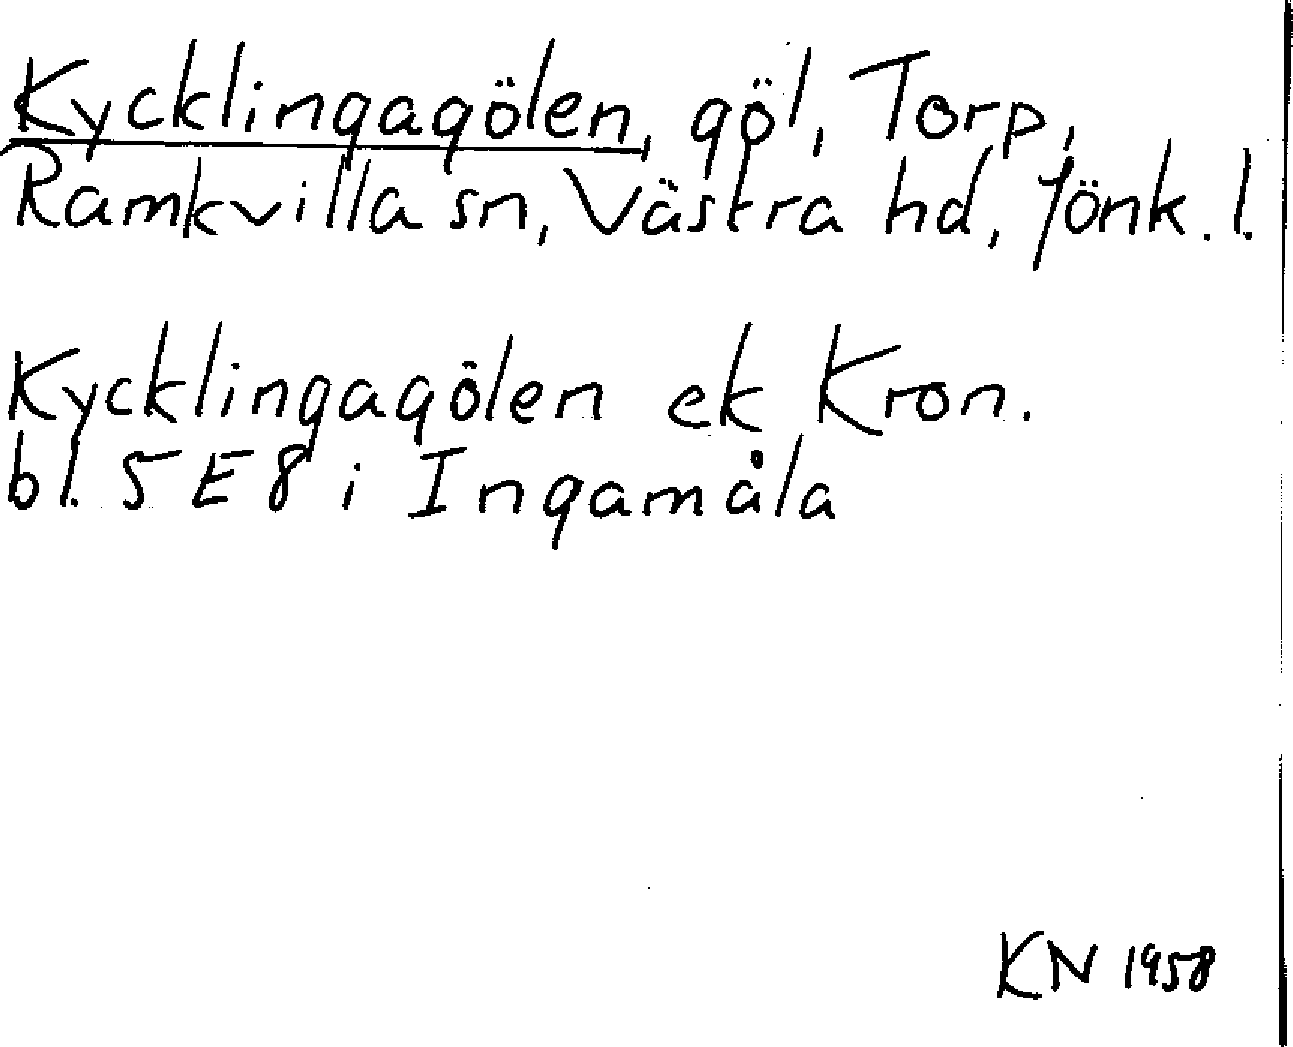 Kycklingagölen, göl, Torp,
Ramkvilla sn, Västra hd, Jönk. l.
Kycklingagölen ek Kron.
bl. 5 E 8 i Ingamåla
KN 1958